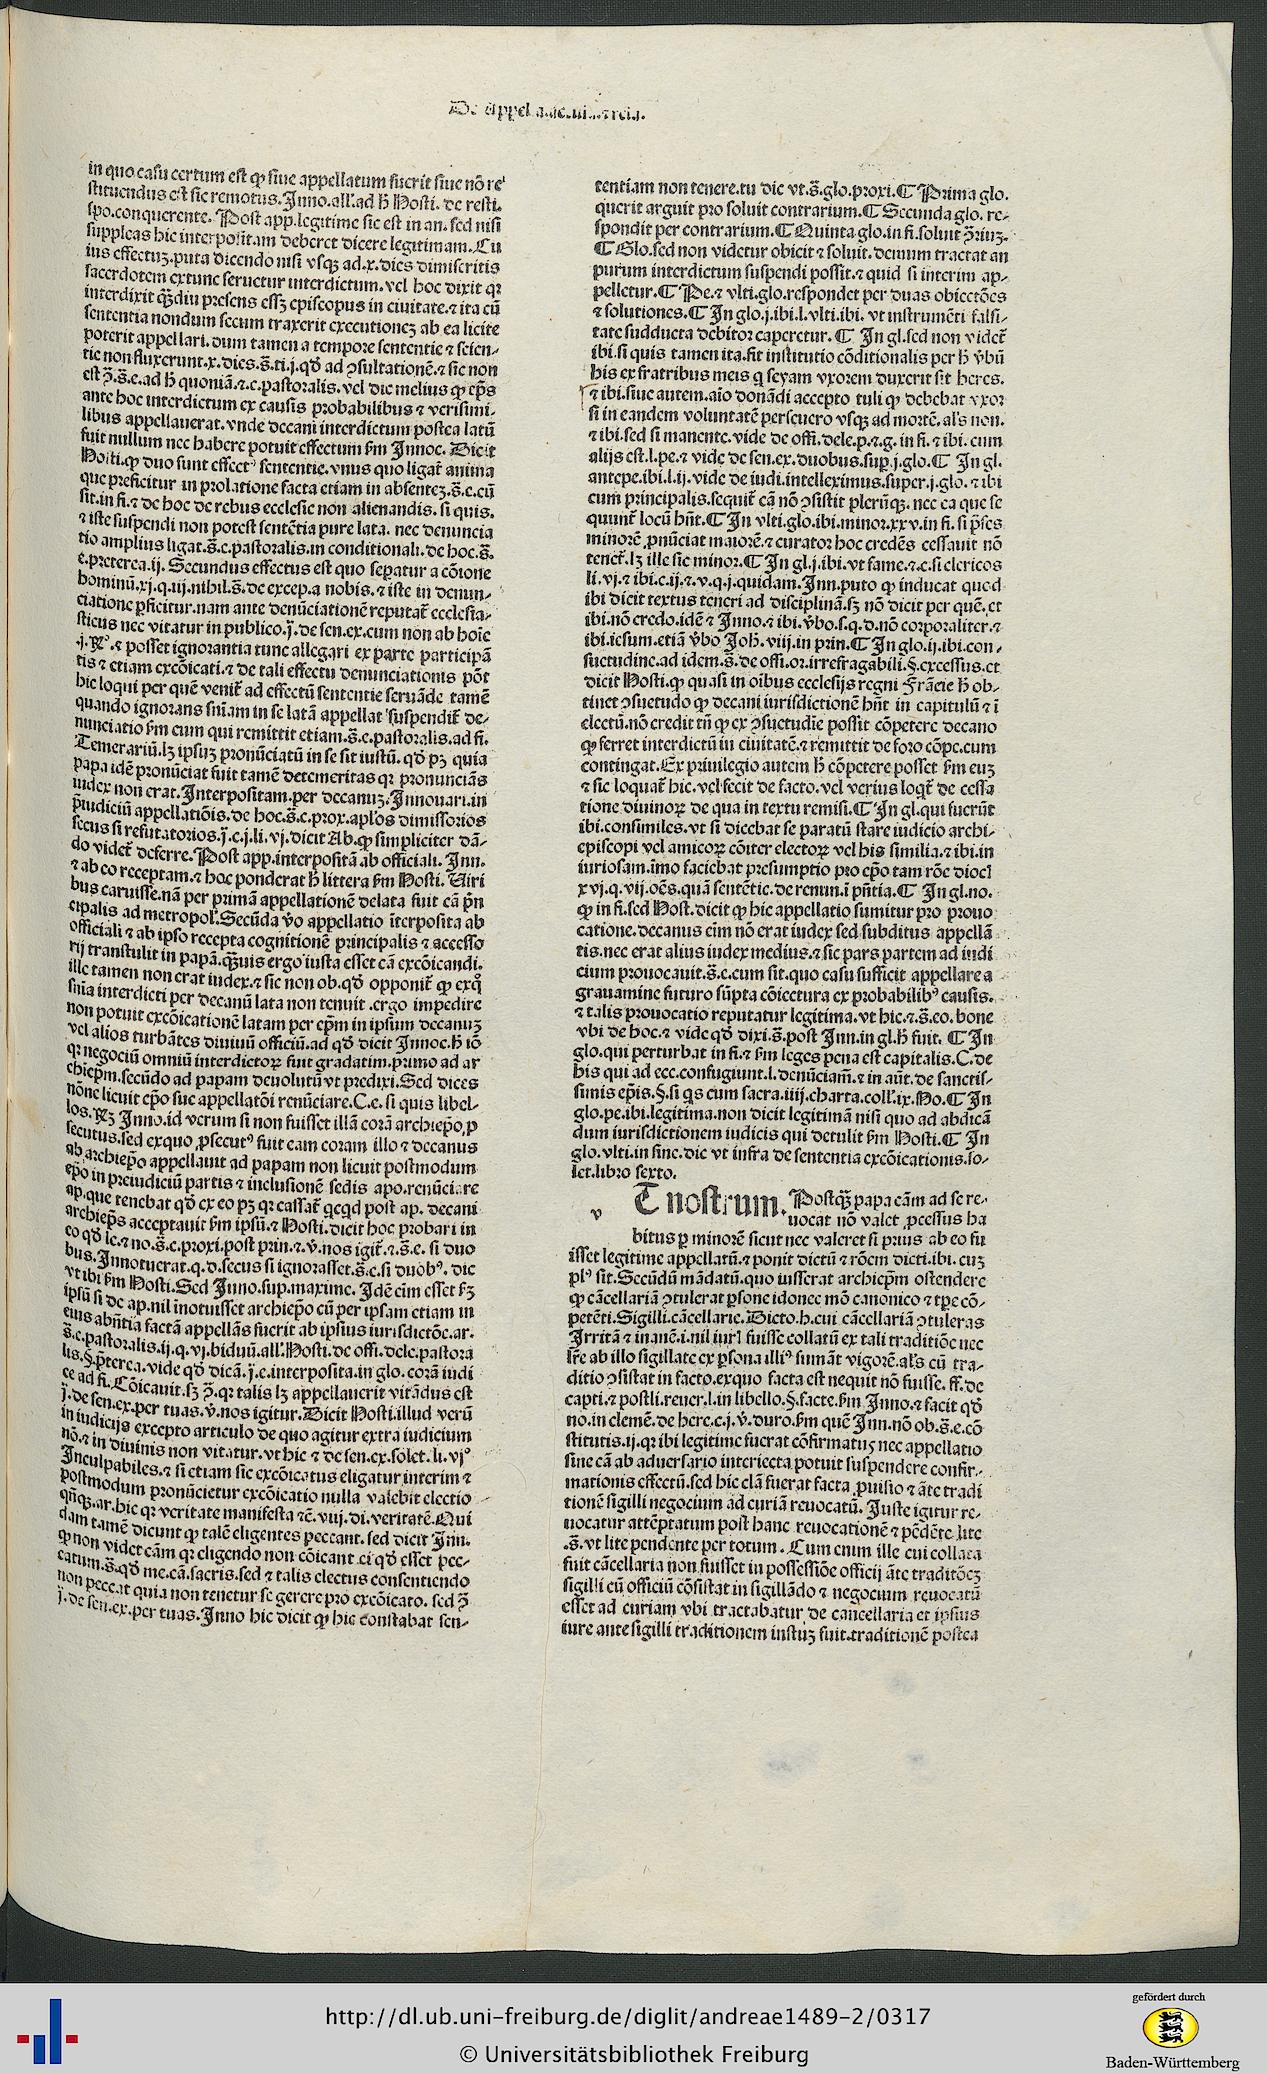 in quo casu certum est ꝙ siue appellatum fuerit siue nō re
stituendus est sic remotus. Inno. all'. ad h̄ Hosti. de resti.
spo. conquerente. Post app. legitime sic est in an. sed nisi
suppleas hic interpositam deberet dicere legitimam. Cu
ius effectuʒ. puta dicendo nisi vsqʒ ad .x. dies dimiseritis
sacerdotem extunc seruetur interdictum. vel hoc dixit qꝛ
interdixit qʒ̄diu presens essʒ episcopus in ciuitate. ⁊ ita cū
sententia nondum secum traxerit executioneʒ ab ea licite
poterit appellari. dum tamen a tempore sententie ⁊ scien-
tie non fluxerunt .x. dies. s̄. ti. j. qd̄ ad ꝯsultationē. ⁊ sic non
ante hoc interdictum ex causis probabilibus ⁊ verisimi-
libus appellauerat. vnde decani interdictum postea latū
fuit nullum nec habere potuit effectum ẜm Innoc. Dicit
Hosti. ꝙ duo sunt effectꝰ sententie. vnus quo ligat̄ anima
que preficitur in prolatione facta etiam in absenteʒ. s̄. e. cū
sit. in fi. ⁊ de hoc de rebus ecclesie non alienandis. si quis.
⁊ iste suspendi non potest sentētia pure lata. nec denuncia
tio amplius ligat. s̄. e. pastoralis. in conditionali. de hoc. s̄.
e. preterea. ij. Secundus effectus est quo seꝑatur a cōione
hominū. xj. q. iij. nihil. s̄. de excep. a nobis. ⁊ iste in denun-
ciatione ꝑficitur. nam ante denūciationē reputat̄ ecclesia-
sticus nec vitatur in publico. j̄. de sen. ex. cum non ab hoīe
⁊ posset ignorantia tunc allegari ex parte participā
tis ⁊ etiam excōicati. ⁊ de tali effectu denunciationis pōt
hic loqui per quē venit̄ ad effectū sententie seruāde tamē
quando ignorans sn̄iam in se latā appellat suspendit̄ de-
nunciatio ẜm eum qui remittit etiam. s̄. e. pastoralis. ad fi.
Temerariū. lʒ ipsuʒ pronūciatū in se sit iustū. qd̄ pʒ quia
papa idē pronūciat fuit tamē detemeritas qꝛ pronunciās
iudex non erat. Interpositam. per decanuʒ. Innouari. in
p̄iudiciū appellatiōis. de hoc. s̄. e. prox. apl'os dimissorios
secus si refutatorios. j̄. e. j. li. vj. dicit Ab. ꝙ simpliciter dā-
do videt̄ deferre. Post app. interpositā ab officiali. Inn.
⁊ ab eo receptam. ⁊ hoc ponderat h̄ littera ẜm Hosti. Uiri
bus caruisse. nā per primā appellationē delata fuit cā pr̄in
cipalis ad metropol'. Secūda v̄o appellatio īterposita ab
officiali ⁊ ab ipso recepta cognitionē principalis ⁊ accesso
rij transtulit in papā. qʒ̄uis ergo iusta esset cā excōicandi.
ille tamen non erat iudex. ⁊ sic non ob. qd̄ opponit̄ ꝙ exq°
sn̄ia interdicti per decanū lata non tenuit. ergo impedire
non potuit excōicationē latam per ep̄m in ipsum decanuʒ
vel alios turbātes diuinū officiū. ad qd̄ dicit Innoc. h̄ iō
qꝛ negociū omniū interdictoꝝ fuit gradatim. primo ad ar
chiep̄m. secūdo ad papam deuolutū vt predixi. Sed dices
nōne licuit ep̄o sue appellatōi renūciare. C. e. si quis libel-
Inno. id verum si non fuisset illā corā archiep̄o ꝓ
secutus. sed exquo ꝓsecutꝰ fuit eam coram illo ⁊ decanus
ab archiep̄o appellauit ad papam non licuit postmodum
ep̄o in preiudiciū partis ⁊ inclusionē sedis apo. renūciare
ap. que tenebat qd̄ ex eo pʒ qꝛ cassat̄ qcqd post ap. decani
archiep̄s acceptauit ẜm ipsū. ⁊ Hosti. dicit hoc probari in
eo qd̄ le. ⁊ no. s̄. e. proxi. post prin. ⁊. v̄. nos igit̄. ⁊. s̄. e. si duo
bus. Innotuerat. q. d. secus si ignorasset. s̄. e. si duobꝰ. dic
vt ibi ẜm Hosti. Sed Inno. sup. maxime. Idē eīm esset ẜʒ
ipsū si de ap. nil inotuisset archiep̄o cū per ipsam etiam in
eius abn̄tia factā appellās fuerit ab ipsius iurisdictōe. ar.
s̄. e. pastoralis. ij. q. vj. biduū. all'. Hosti. de offi. dele. pastora
lis. §. p̄terea. vide qd̄ dicā. j̄. e. interposita. in glo. corā iudi
ce ad fi. Cōicauit. sʒ ꝯ̄. qꝛ talis lʒ appellauerit vitādus est
j̄. de sen. ex. per tuas. v̄. nos igitur. Dicit Hosti. illud verū
in iudicijs excepto articulo de quo agitur extra iudicium
nō. ⁊ in diuinis non vitatur. vt hic ⁊ de sen. ex. solet. li. vj°
Inculpabiles. ⁊ si etiam sic excōicatus eligatur interim ⁊
postmodum pronūcietur excōicatio nulla valebit electio
qn̄qʒ. ar. hic qꝛ veritate manifesta ⁊c̄. viij. di. veritatē. Qui
dam tamē dicunt ꝙ talē eligentes peccant. sed dicit Inn.
ꝙ non videt eam qꝛ eligendo non cōicant ei qd̄ esset pec-
catum. s̄. qd̄ me. cā. sacris. sed ⁊ talis electus consentiendo
non peccat quia non tenetur se gerere pro excōicato. sed ꝯ̄
j̄. de sen. ex. per tuas. Inno hic dicit ꝙ hic constabat sen-
tentiam non tenere. tu dic vt. s̄. glo. proxi. ¶ Prima glo.
querit arguit pro soluit contrarium. ¶ Secunda glo. re-
spondit per contrarium. ¶ Quinta glo. in fi. soluit ꝯ̄riuʒ.
¶ Glo. sed non videtur obicit ⁊ soluit. demum tractat an
purum interdictum suspendi possit. ⁊ quid si interim ap-
pelletur. ¶ Pe. ⁊ vlti. glo. respondet per duas obiectōes
⁊ solutiones. ¶ In glo. j. ibi. l. vlti. ibi. vt instrumēti falsi-
tate sudducta debitor caperetur. ¶ In gl. sed non videt̄
ibi. si quis tamen ita. fit institutio cōditionalis per h̄ v̄bū
his ex fratribus meis q seyam vxorem duxerit sit heres.
⁊ ibi. siue autem. aīo donādi accepto tuli ꝙ debebat vxor
si in eandem voluntatē perseuero vsqʒ ad mortē. al's non.
⁊ ibi. sed si manente. vide de offi. dele. p. ⁊. g. in fi. ⁊ ibi. cum
alijs est. l. pe. ⁊ vide de sen. ex. duobus. sup. j. glo. ¶ In gl.
antepe. ibi. l. ij. vide de iudi. intelleximus. super. j. glo. ⁊ ibi
cum principalis. sequit̄ cā nō ꝯsistit pleꝛūqʒ. nec ea que se
quunt̄ locū hn̄t. ¶ In vlti. glo. ibi. minor. xxv. in fi. si p̄ses
minorē ꝓnūciat maiorē. ⁊ curator hoc credēs cessauit nō
tenet̄. lʒ ille sic minor. ¶ In gl. j. ibi. vt fame. ⁊. c. si clericos
li. vj. ⁊ ibi. c. ij. ⁊. v. q. j. quidam. Inn. puto ꝙ inducat quod
ibi dicit textus teneri ad disciplinā. sʒ nō dicit per quē. et
ibi. nō credo. idē ⁊ Inno. ⁊ ibi. v̄bo. s. q. d. nō corporaliter. ⁊
ibi. iesum. etiā v̄bo Joh. viij. in prin. ¶ In glo. ij. ibi. con-
suetudine. ad idem. s̄. de offi. or. irrefragabili. §. excessus. et
dicit Hosti. ꝙ quasi in oībus ecclesijs regni Frācie h̄ ob-
tinet ꝯsuetudo ꝙ decani iurisdictionē hn̄t in capitulū ⁊ ī
electū. nō credit tn̄ ꝙ ex ꝯsuetudīe possit cōpetere decano
ꝙ ferret interdictū in ciuitatē. ⁊ remittit de foro cōpe. cum
contingat. Ex priuilegio autem h̄ cōpetere posset ẜm euʒ
⁊ sic loquat̄ hic. vel fecit de facto. vel verius loqt̄ de cessa
tione diuinoꝝ de qua in textu remisi. ¶ In gl. qui fuerūt
ibi. consimiles. vt si dicebat se paratū stare iudicio archi-
episcopi vel amicoꝝ cōiter electoꝝ vel his similia. ⁊ ibi. in
iuriosam. īmo faciebat presumptio pro ep̄o tam rōe dioc'
xvj. q. vij. oēs. quā sentētie. de renun. ī pn̄tia. ¶ In gl. no.
ꝙ in fi. sed Host. dicit ꝙ hic appellatio sumitur pro prouo
catione. decanus eīm nō erat iudex sed subditus appellā
tis. nec erat alius iudex medius. ⁊ sic pars partem ad iudi
cium prouocauit. s̄. e. cum sit. quo casu sufficit appellare a
grauamine futuro sūpta cōiectura ex probabilibꝰ causis.
⁊ talis prouocatio reputatur legitima. vt hic. ⁊. s̄. eo. bone
vbi de hoc. ⁊ vide qd̄ dixi. s̄. post Inn. in gl. h̄ fuit. ¶ In
glo. qui perturbat in fi. ⁊ ẜm leges pena est capitalis. C. de
his qui ad ecc. confugiunt. l. denūciam̄. ⁊ in aut̄. de sanctis-
simis ep̄is. §. si qs cum sacra. iiij. charta. coll'. ix. No. ¶ In
glo. pe. ibi. legitima. non dicit legitimā nisi quo ad abdicā
dum iurisdictionem iudicis qui detulit ẜm Hosti. ¶ In
glo. vlti. in fine. dic vt infra de sententia excōicationis. so-
let. libro sexto.
v T nostrum. Postqʒ̄ papa cām ad se re-
uocat nō valet ꝓcessus ha
bitus ꝑ minorē sicut nec valeret si prius ab eo fu
isset legitime appellatū. ⁊ ponit dictū ⁊ rōem dicti. ibi. cuʒ
plꝰ sit. Secūdū mādatū. quo iusserat archiep̄m ostendere
ꝙ cācellariā ꝯtulerat ꝑsone idonee mō canonico ⁊ tꝑe cō-
petēti. Sigilli. cācellarie. Dicto. h. cui cācellariā ꝯtuleras
Irritā ⁊ inanē. i. nil iur' fuisse collatū ex tali traditiōe nec
lr̄e ab illo sigillate ex ꝑsona illiꝰ sumāt vigorē. al's cū tra-
ditio ꝯsistat in facto. exquo facta est nequit nō fuisse. ff. de
capti. ⁊ postli. reuer. l. in libello. §. facte. ẜm Inno. ⁊ facit qd̄
no. in clemē. de here. c. j. v̄. duro. ẜm quē Inn. nō ob. s̄. e. cō
stitutis. ij. qꝛ ibi legitime fuerat cōfirmatus nec appellatio
sine cā ab aduersario interiecta potuit suspendere confir-
mationis effectū. sed hic clā fuerat facta ꝓuisio ⁊ āte tradi
tionē sigilli negocium ad curiā reuocatū. Iuste igitur re-
uocatur attēptatum post hanc reuocationē ⁊ pēdēte lite
.s̄. vt lite pendente per totum. Cum enim ille cui collata
fuit cācellaria non fuisset in possessiōe officij āte traditōeʒ
sigilli cū officiū cōsistat in sigillādo ⁊ negocium reuocatū
esset ad curiam vbi tractabatur de cancellaria et ipsius
iure ante sigilli traditionem iustuʒ fuit. traditionē postea
http://dl.ub.uni-freiburg.de/diglit/andreae1489-2/0317
© Universitätsbibliothek Freiburg
gefördert durch
Baden-Württemberg